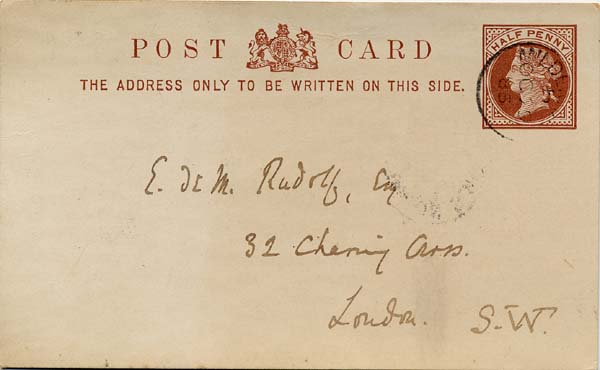 POST CARD
HALF PENNY
THE ADDRESS ONLY TO BE WRITTEN ON THIS SIDE.
E. de M. Rudolf, Esq
32 Charing Cross.
London. S.W.